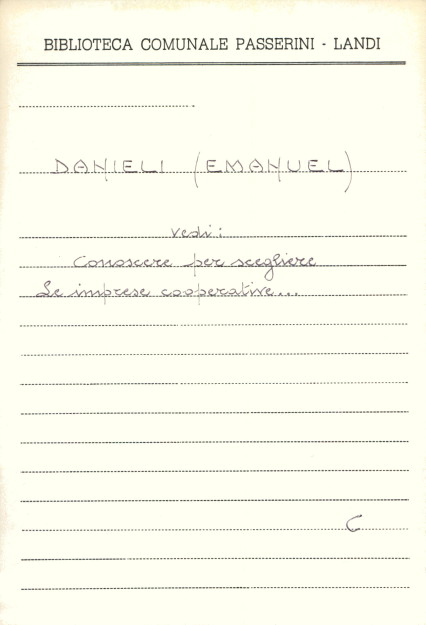 BIBLIOTECA COMUNALE PASSERINI - LANDI
DANIELI (EMANUEL)
vedi:
Conoscere per scegliere
Le imprese cooperative...
C